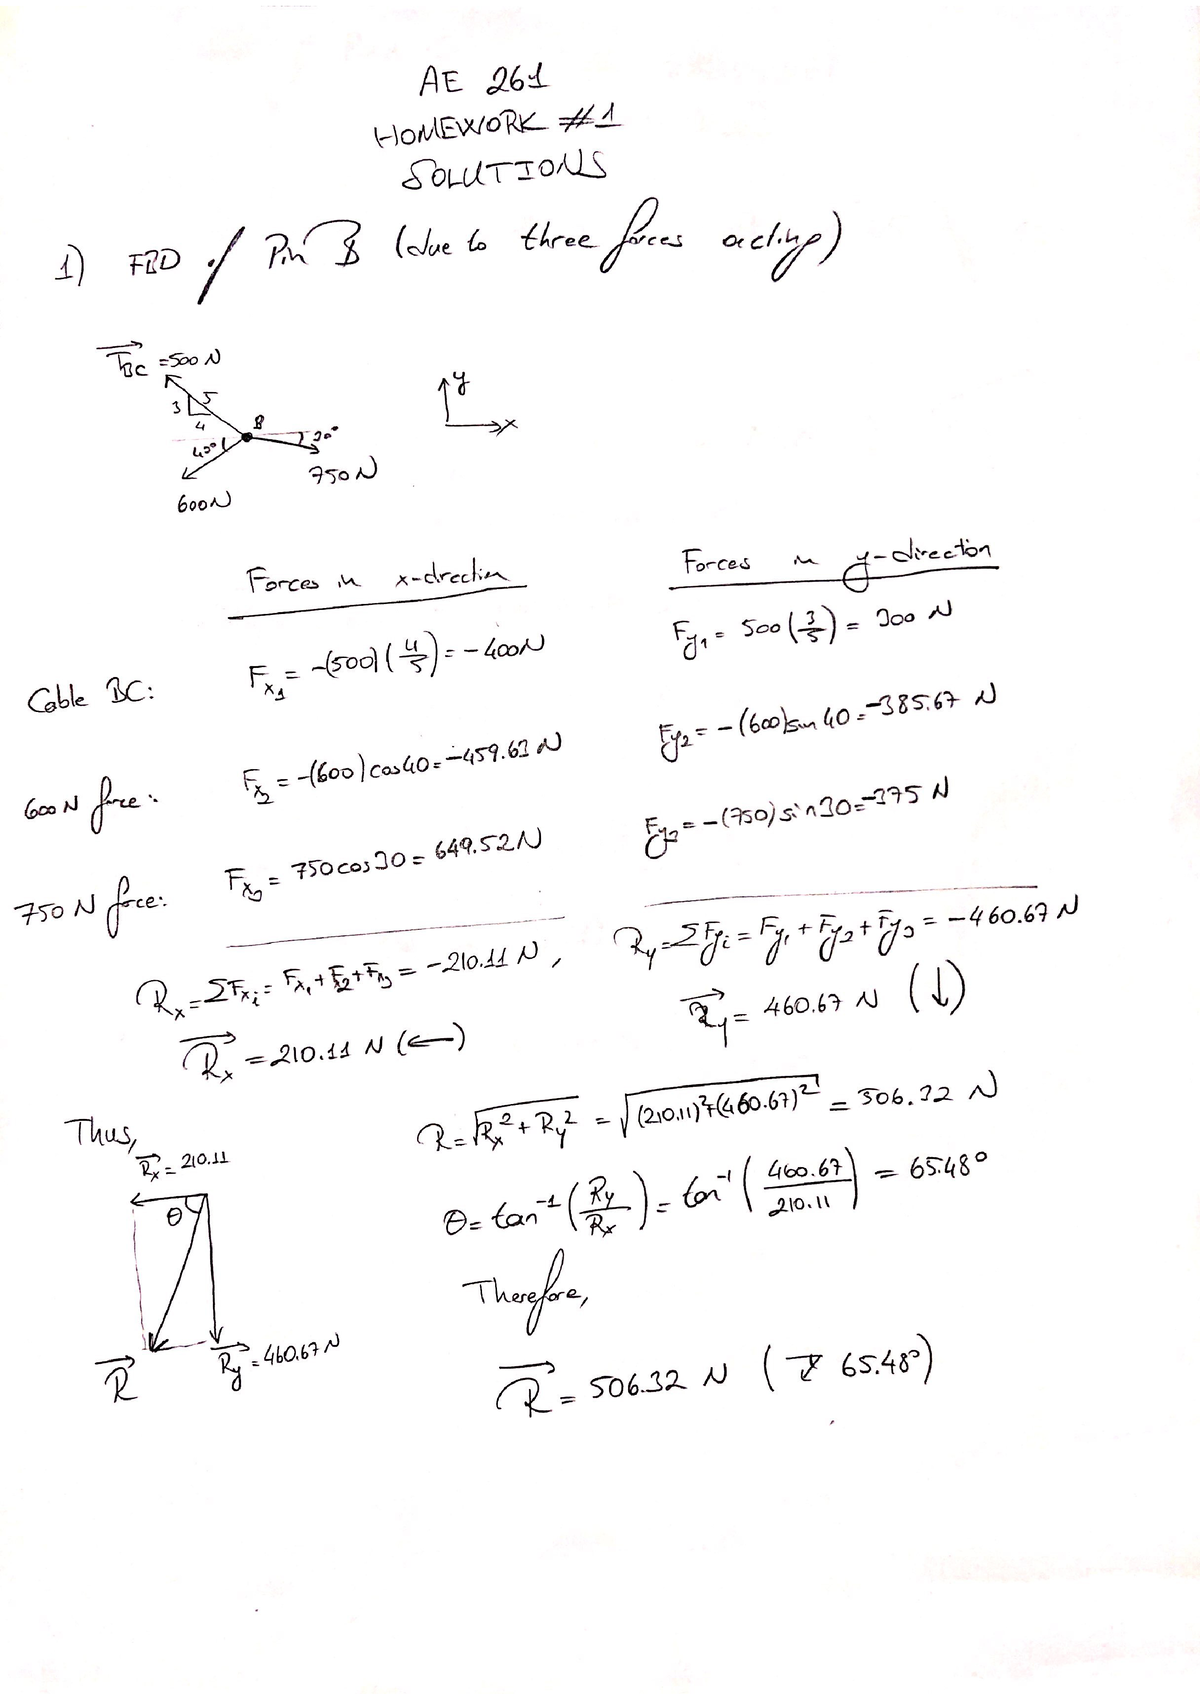 AE 261
HOMEWORK #1
SOLUTIONS
1) FBD of Pin B (due to three forces acting)
T_BC = 500 N
3 5
4
B
40° 30°
750 N
600 N
y
x
Forces in x-drection
Forces in y-direction
Cable BC: F_x1 = -(500)(4/5) = -400N
F_y1 = 500(3/5) = 300 N
600 N force: F_x2 = -(600)cos40 = -459.63 N
F_y2 = -(600)sin 40 = -385.67 N
750 N force: F_x3 = 750cos30 = 649.52N
F_y3 = -(750)sin30 = -375 N
R_x = ΣF_xi = F_x1 + F_x2 + F_x3 = -210.11 N,
R_y = ΣF_yi = F_y1 + F_y2 + F_y3 = -460.67 N
R_x = 210.11 N (←)
R_y = 460.67 N (↓)
Thus,
R_x = 210.11
θ
R
R_y = 460.67 N
R = √(R_x² + R_y²) = √((210.11)² + (460.67)²) = 506.32 N
θ = tan⁻¹(R_y/R_x) = tan⁻¹(460.67/210.11) = 65.48°
Therefore,
R = 506.32 N (65.48°)